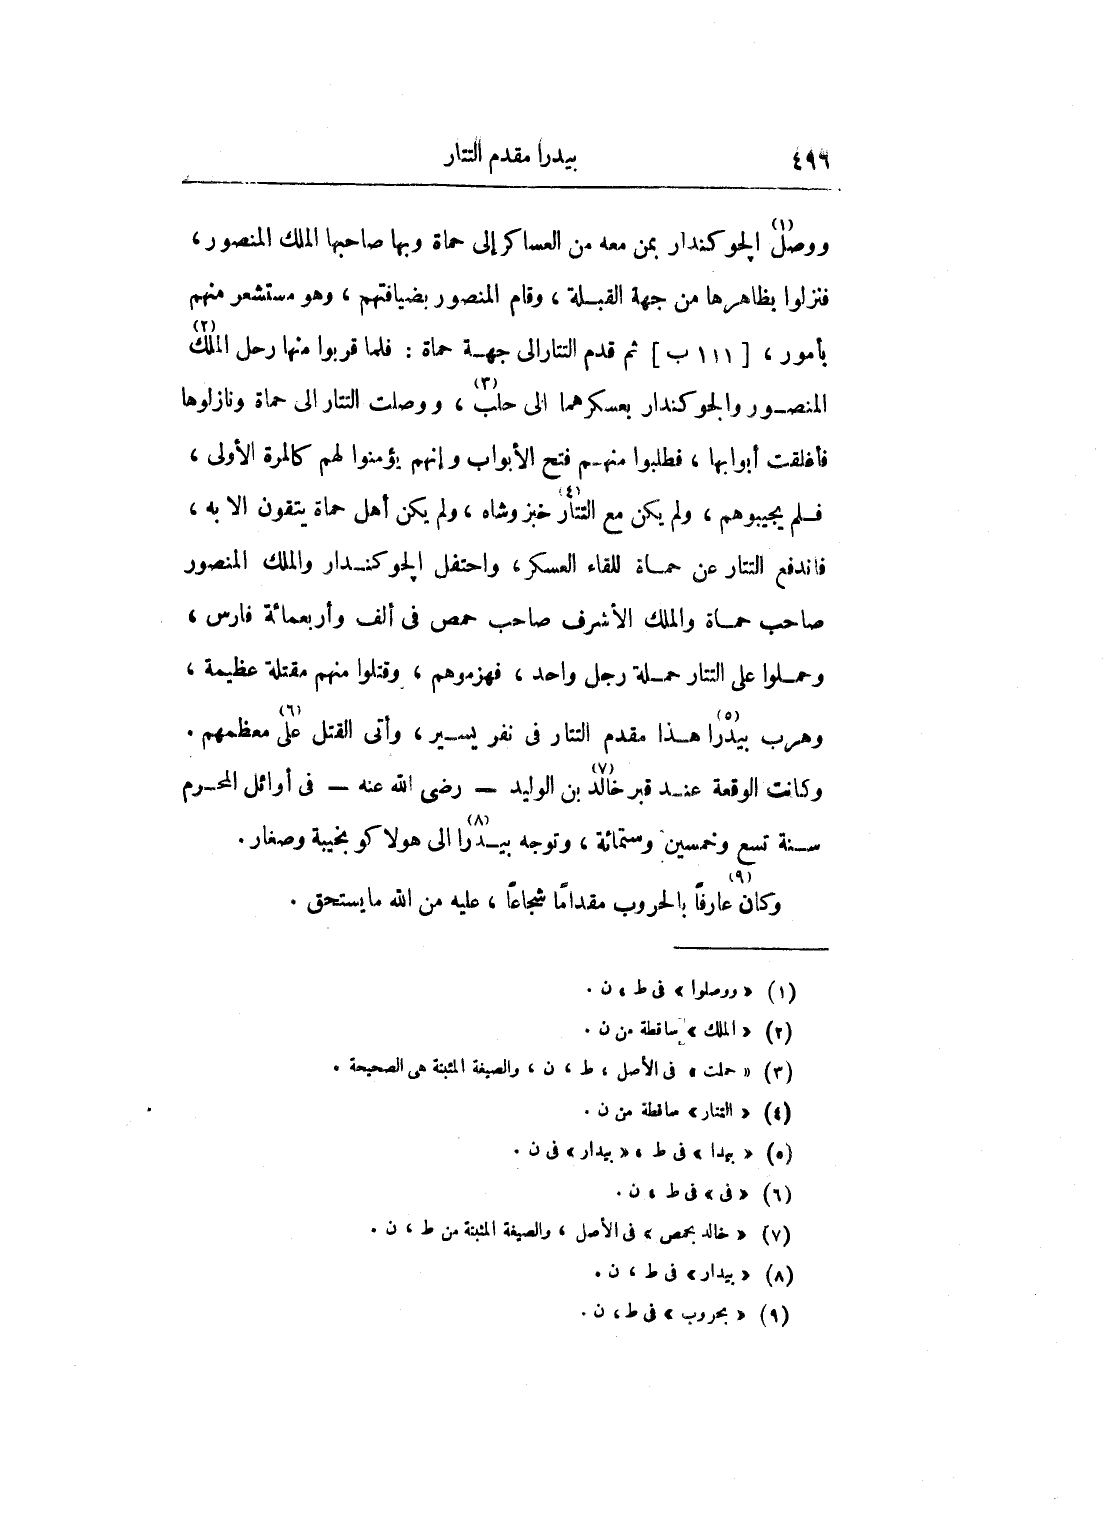 ٤٩٦ بيدرا مقدم التتار
ووصل (١) الجوكندار بمن معه من العساكر إلى حماة وبها صاحبها الملك المنصور ،
فنزلوا بظاهرها من جهة القبلة ، وقام المنصور بضيافتهم ، وهو مستشعر منهم
بأمور ، [ ١١١ ب ] ثم قدم التتار الى جهة حماة : فلما قربوا منها رحل الملك (٢)
المنصور والجوكندار بعسكرهما الى حلب (٣) ، ووصلت التتار الى حماة ونازلوها
فأغلقت أبوابها ، فطلبوا منهم فتح الأبواب وإنهم يؤمنوا لهم كالمرة الأولى ،
فلم يجيبوهم ، ولم يكن مع التتار (٤) خبز وشاه ، ولم يكن أهل حماة يتقون الا به ،
فاندفع التتار عن حماة للقاء العسكر ، واحتفل الجوكندار والملك المنصور
صاحب حماة والملك الأشرف صاحب حمص فى ألف وأربعمائة فارس ،
وحملوا على التتار حملة رجل واحد ، فهزموهم ، وقتلوا منهم مقتلة عظيمة ،
وهرب بيدرا (٥) هذا مقدم التتار فى نفر يسير ، وأتى القتل على (٦) معظمهم .
وكانت الوقعة عند قبر خالد (٧) بن الوليد — رضى الله عنه — فى أوائل المحرم
سنة تسع وخمسين وستمائة ، وتوجه بيدرا (٨) الى هولاكو بخيبة وصغار .
وكان عارفًا (٩) بالحروب مقدامًا شجاعًا ، عليه من الله ما يستحق .
(١) « ووصلوا » فى ط ، ن .
(٢) « الملك » ساقطة من ن .
(٣) « حملت » فى الأصل ، ط ، ن ، والصيغة المثبتة هى الصحيحة .
(٤) « التتار » ساقطة من ن .
(٥) « بيدا » فى ط ، « بيدار » فى ن .
(٦) « فى » فى ط ، ن .
(٧) « خالد بحمص » فى الأصل ، والصيغة المثبتة من ط ، ن .
(٨) « بيدار » فى ط ، ن .
(٩) « بحروب » فى ط ، ن .